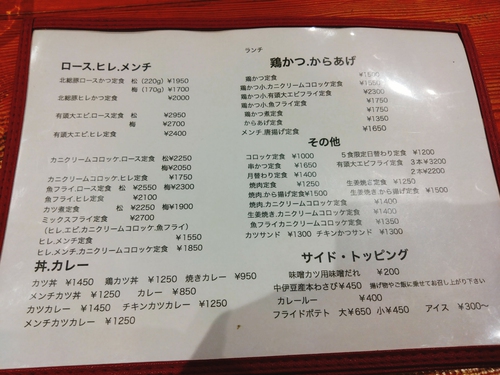 ランチ
ロース.ヒレ.メンチ
北総豚ロースかつ定食　松（220g）¥1950
梅（170g）¥1700
北総豚ヒレかつ定食　¥2000
有頭大エビ.ロース定食　松　¥2950
梅　¥2700
有頭大エビ.ヒレ定食　¥2400
カニクリームコロッケ.ロース定食　松¥2250
梅¥2050
カニクリームコロッケ.ヒレ定食　¥1750
魚フライ.ロース定食　松　¥2550　梅¥2300
魚フライ.ヒレ定食　¥2100
カツ煮定食　松　¥2250　梅¥1900
ミックスフライ定食　¥2700
（ヒレ.エビ.カニクリームコロッケ.魚フライ）
ヒレ.メンチ定食　¥1550
ヒレ.メンチ.カニクリームコロッケ定食　¥1850
丼.カレー
カツ丼　¥1450　鶏カツ丼　¥1250　焼きカレー　¥950
メンチカツ丼　¥1250　カレー　¥850
カツカレー　¥1450　チキンカツカレー　¥1250
メンチカツカレー　¥1250
鶏かつ.からあげ
鶏かつ定食
鶏かつ小.カニクリームコロッケ定食
鶏かつ小.有頭大エビフライ定食　¥2300
鶏かつ小.魚フライ定食　¥1750
鶏かつ煮定食　¥1750
からあげ定食
メンチ.唐揚げ定食　¥1650
その他
コロッケ定食　¥1000　５食限定日替わり定食　¥1200
串かつ定食　¥1650　有頭大エビフライ定食　３本¥3200
月替わり定食　¥1400　２本¥2200
焼肉定食　¥1250　生姜焼き定食　¥1250
焼肉.から揚げ定食¥1500　生姜焼き.から揚げ定食　¥1500
焼肉.カニクリームコロッケ定食　¥1400
生姜焼き.カニクリームコロッケ定食　¥1400
魚フライカニクリームコロッケ定食　¥1350
カツサンド　¥1300　チキンかつサンド　¥1300
サイド・トッピング
味噌カツ用味噌だれ　¥200
中伊豆産本わさび¥450　揚げ物やご飯に乗せてお召し上がり下さい
カレールー　¥400
フライドポテト　大¥650　小¥450　アイス　¥300〜